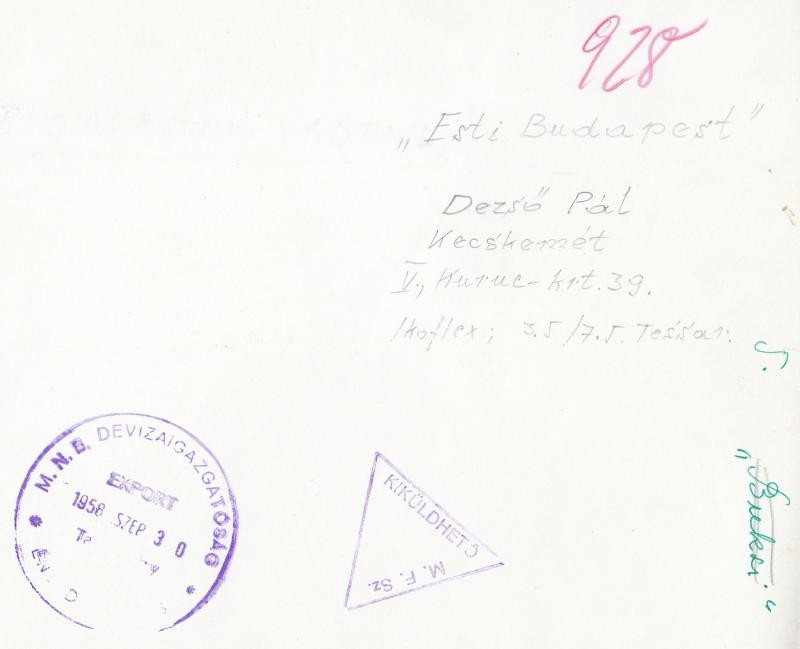 928
„Esti Budapest"
Dezső Pál
Kecskemét
V., Kuruc-krt. 39.
Ikoflex; 3.5/7.5. Tessar.
5.
„Buksi"
M.N.B. DEVIZAIGAZGATÓSÁG
EXPORT
1958 SZEP 30
KIKÜLDHETŐ
M. F. Sz.